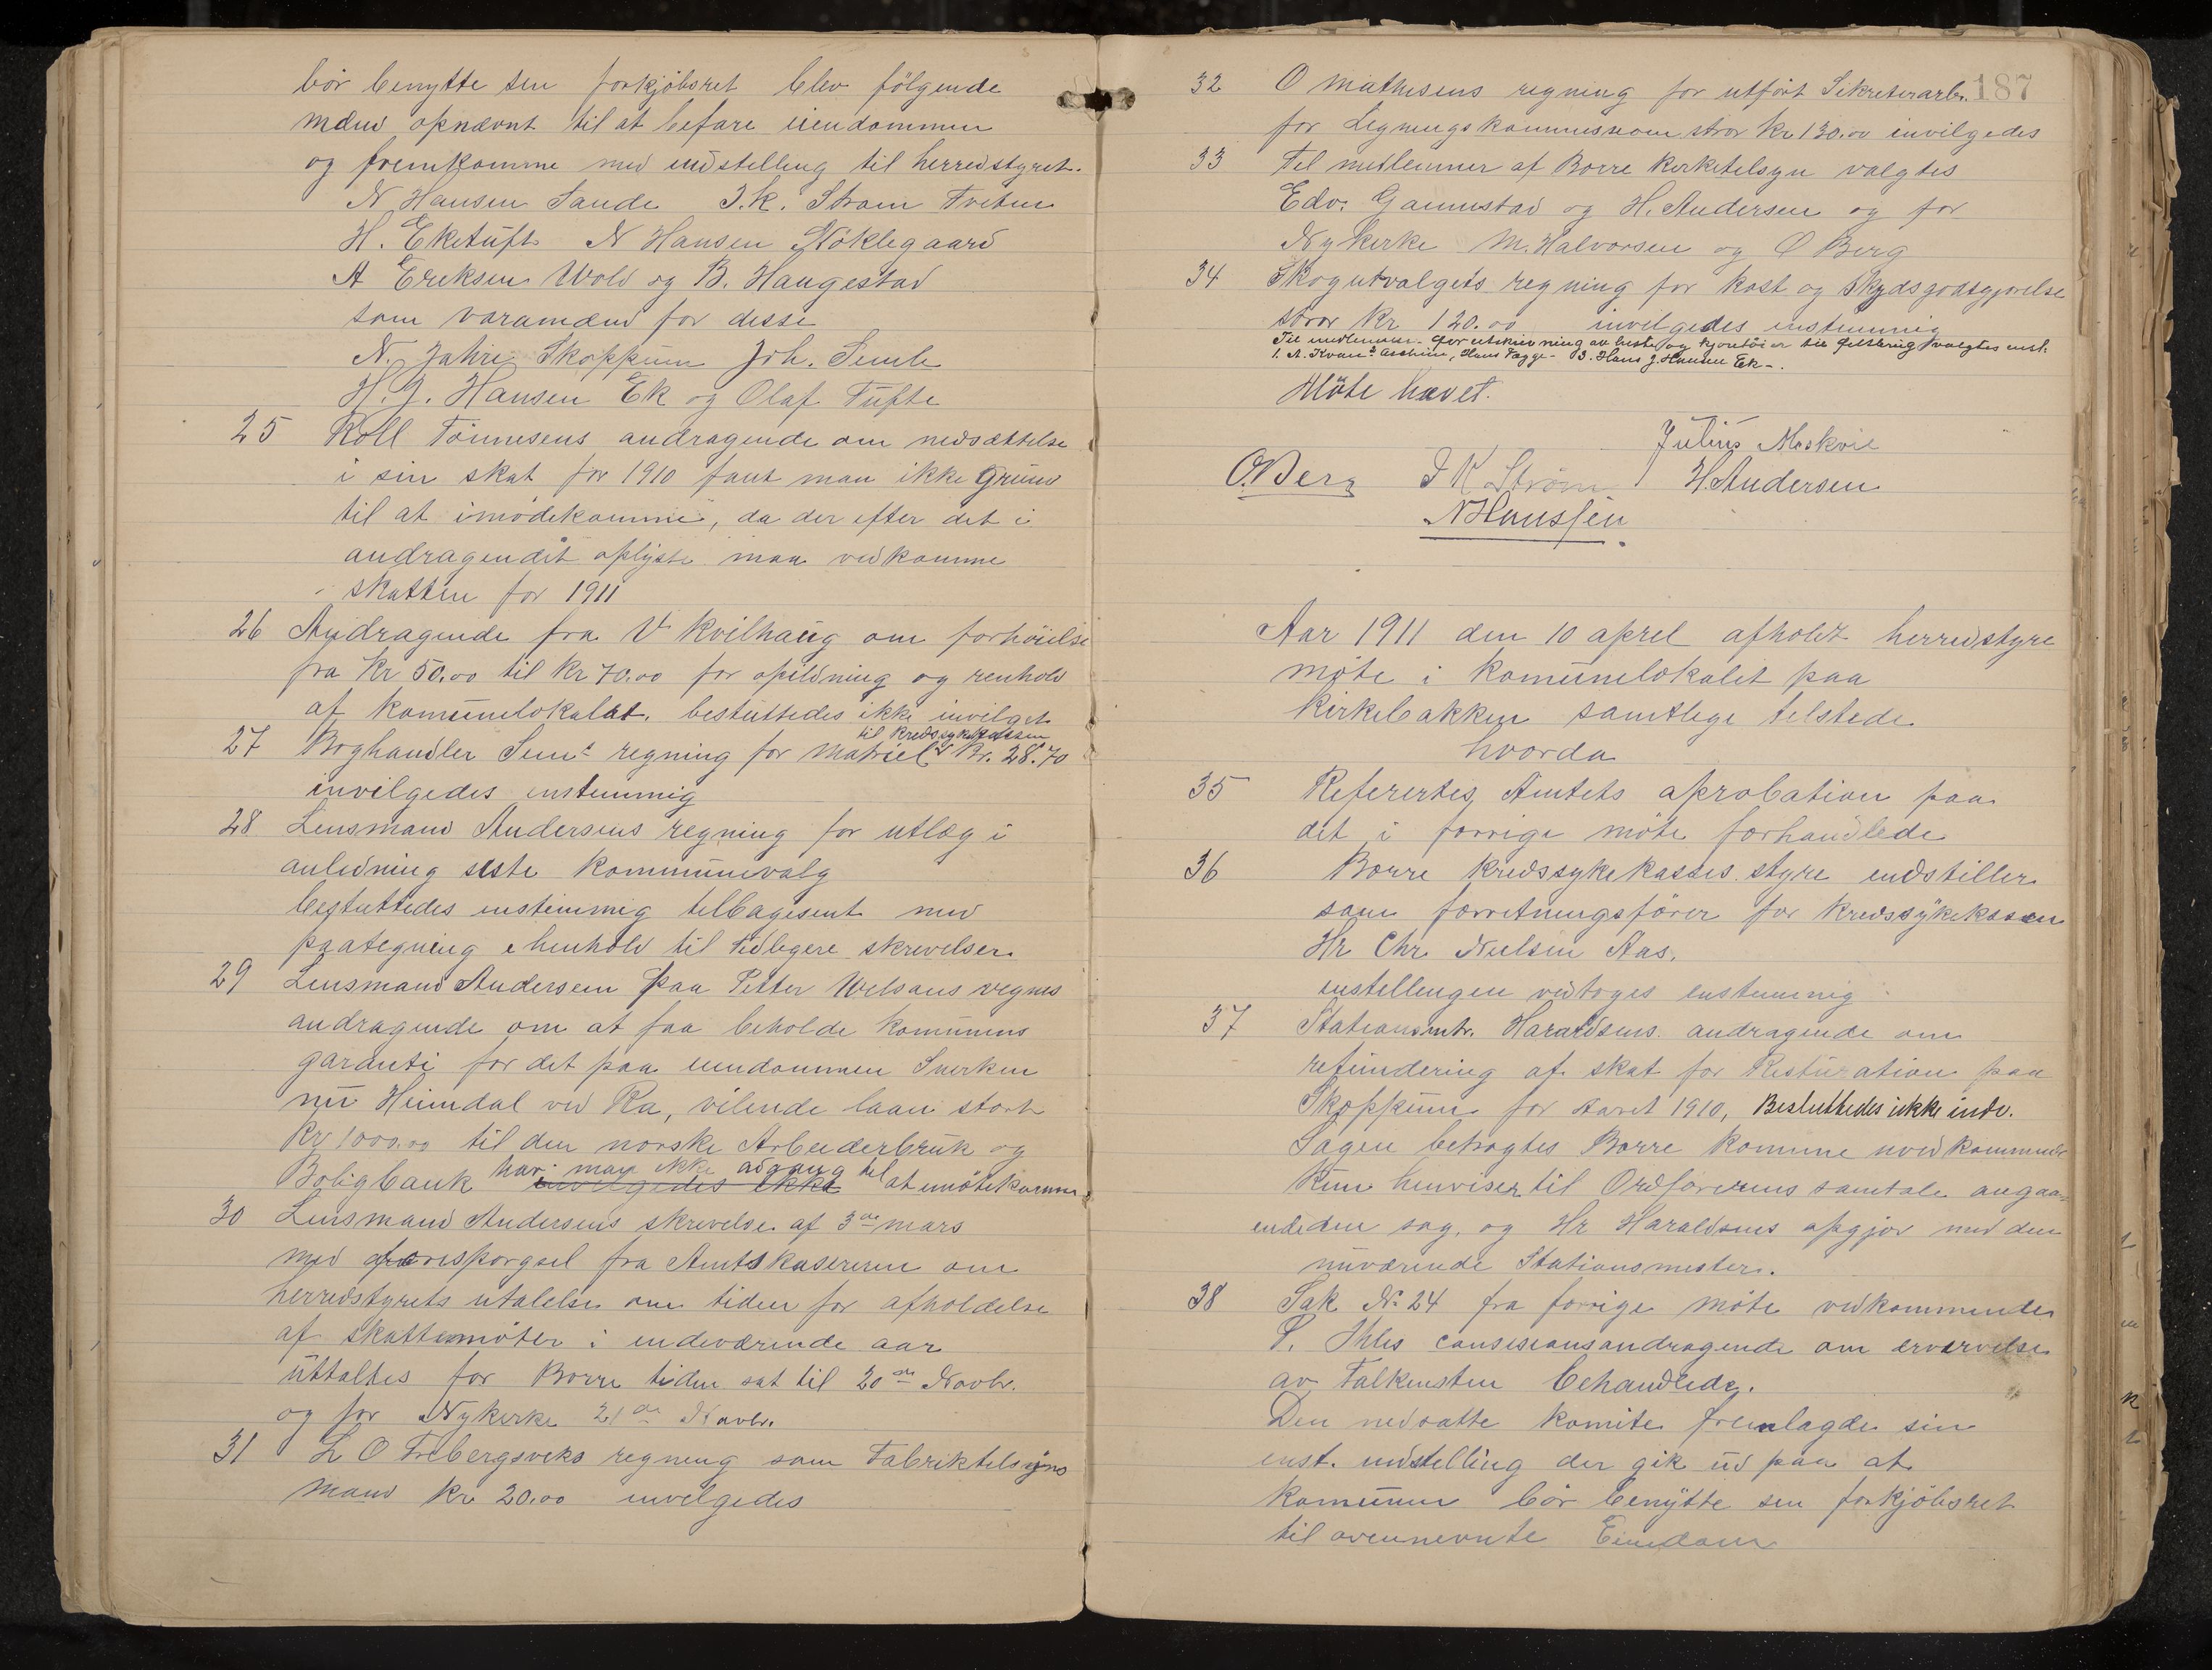 bör benytte sin forkjöbsret blev fölgende
mænd opnævnt til at befare eiendommen
og fremkomme med indstilling til herredstyret.
N Hansen Sande J.K. Strøm Tveten
H. Eketuft N Hansen Nöklegaard
A Eriksen Wold og B. Haugestad
som varamænd for disse
N. Jahre Skoppum Joh. Semb
H.J. Hansen Ek og Olaf Tufte
25 Koll Tönnesens andragende om nedsættelse
i sin skat for 1910 fant man ikke grund
til at imödekomme, da der efter det i
andragendet oplyste maa vedkomme
skatten for 1911
26 Andragende fra V Kvilhaug om forhöielse
fra Kr 50.00 til Kr 70.00 for opildning og renhold
af komunelokalet. besluttedes ikke invilget
til kredssykekassen
27 Boghandler Sems regning for matriel Kr. 28.70
invilgedes enstemmig
28 Lensmand Andersens regning for utlæg i
anledning siste kommunevalg
besluttedes enstemmig tilbagesent med
paategning i henhold til tidligere skrivelser
29 Lensmand Andersen paa Petter Welsans vegnes
andragende om at faa beholde komunens
garanti for det paa eiendommen Snerken
nu Heimdal ved Ra, vilende laan stort
Kr 1000.00 til den norske Arbeiderbruk og
Boligbank har man ikke adgang til at imötekomme
invilgedes ikke
30 Lensmand Andersens skrivelse af 3de mars
med forespörgsel fra Amtskasereren om
herredstyrets utalelse om tiden for afholdelse
af skattemöter i indeværende aar
uttaltes for Borre tiden sat til 20de Novbr.
og for Nykirke 21de Novbr.
31 L O Frebergsviks regning som Fabriktilsyns
mand Kr 20.00 invilgedes
187
32 O Mathisens regning for utfört Sikreterarb.
for Legningskommissionen stror Kr 130.00 invilgedes
33 Til medlemmer af Borre Kirketilsyn valgtes
Edv. Gannestad og H. Andersen og for
Nykirke M. Halvorsen og O Berg
34 Skogutvalgets regning for kost og skydsgodtgjørelse
stror Kr 120.00 invilgedes enstemmig
Til medlemmer for utskrivning av heste og kjøretöier til feltbrug valgtes enst:
1. A. Kvan Aashim, Hans Fagge - 3. Hans J. Hansen Ek -.
Möte hævet.
Julius Moskvil
O. Berg J K Strøm H. Andersen
N Hanssen
Aar 1911 den 10 april afholdt herredstyre
möte i komunelokalet paa
Kirkebakken samtlige tilstede
hvorda
35 Referertes Amtets aprobation paa
det i forrige möte forhandlede
36 Borre kredssykekasses styre indstiller
som forretningsförer for kredssykekassen
Hr Chr. Nielsen Aas.
instillingen vedtoges enstemmig
37 Stationsmtr. Haraldsens andragende om
refundering af skat for Restüration paa
Skoppum for aaret 1910, Besluttedes ikke indv.
Sagen betragtes Borre komune uvedkommende
Kun henviser til Ordförerens samtale angaa-
ende den sag, og Hr Haraldsens opgjør med den
nuværende Stationsmester.
38 Sak No 24 fra forrige möte vedkommende
P. Ihles consesionsandragende om ervervelse
av Falkensten behandlede.
Den nedsatte komite fremlagde sin
enst. indstelling der gik ud paa at
komunen bör benytte sin forkjöbsret
til ovennevnte Eiendom